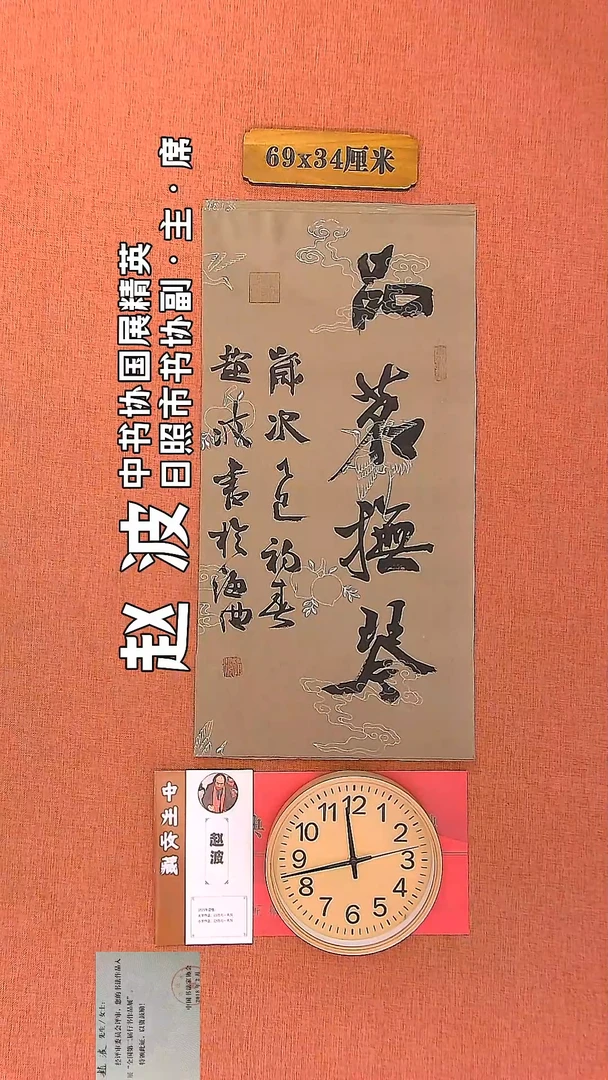 69x34厘米
赵波
中书协国展精英
日照市书协副·主·席
品茗撫琴
歲次乙巳初春
趙波書於海曲
赵波
12
1
2
3
4
5
6
7
8
9
10
11
趙波 先生/女士：
经评审委员会评审，您的书法作品入
展“全国第二届行书作品展”。
特颁此证，以资鼓励！
中国书法家协会